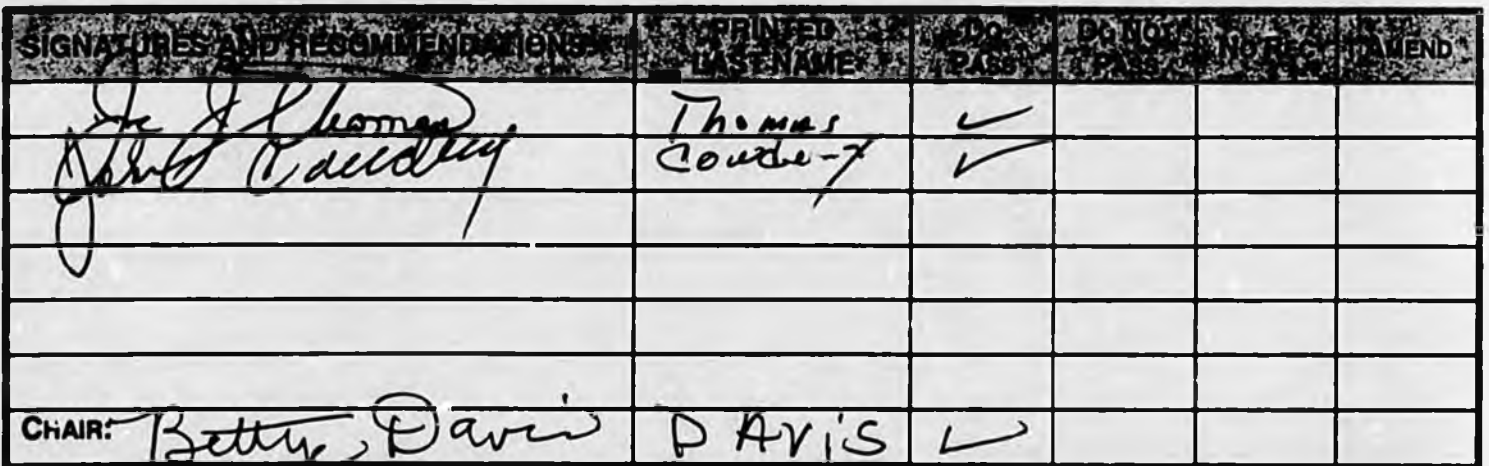 SIGNATURES AND RECOMMENDATIONS PRINTED LAST NAME DO PASS DO NOT PASS NO REC AMEND
Thomas Thomas ✓
John Cowdery Cowdery ✓
CHAIR: Betty Davis DAVIS ✓